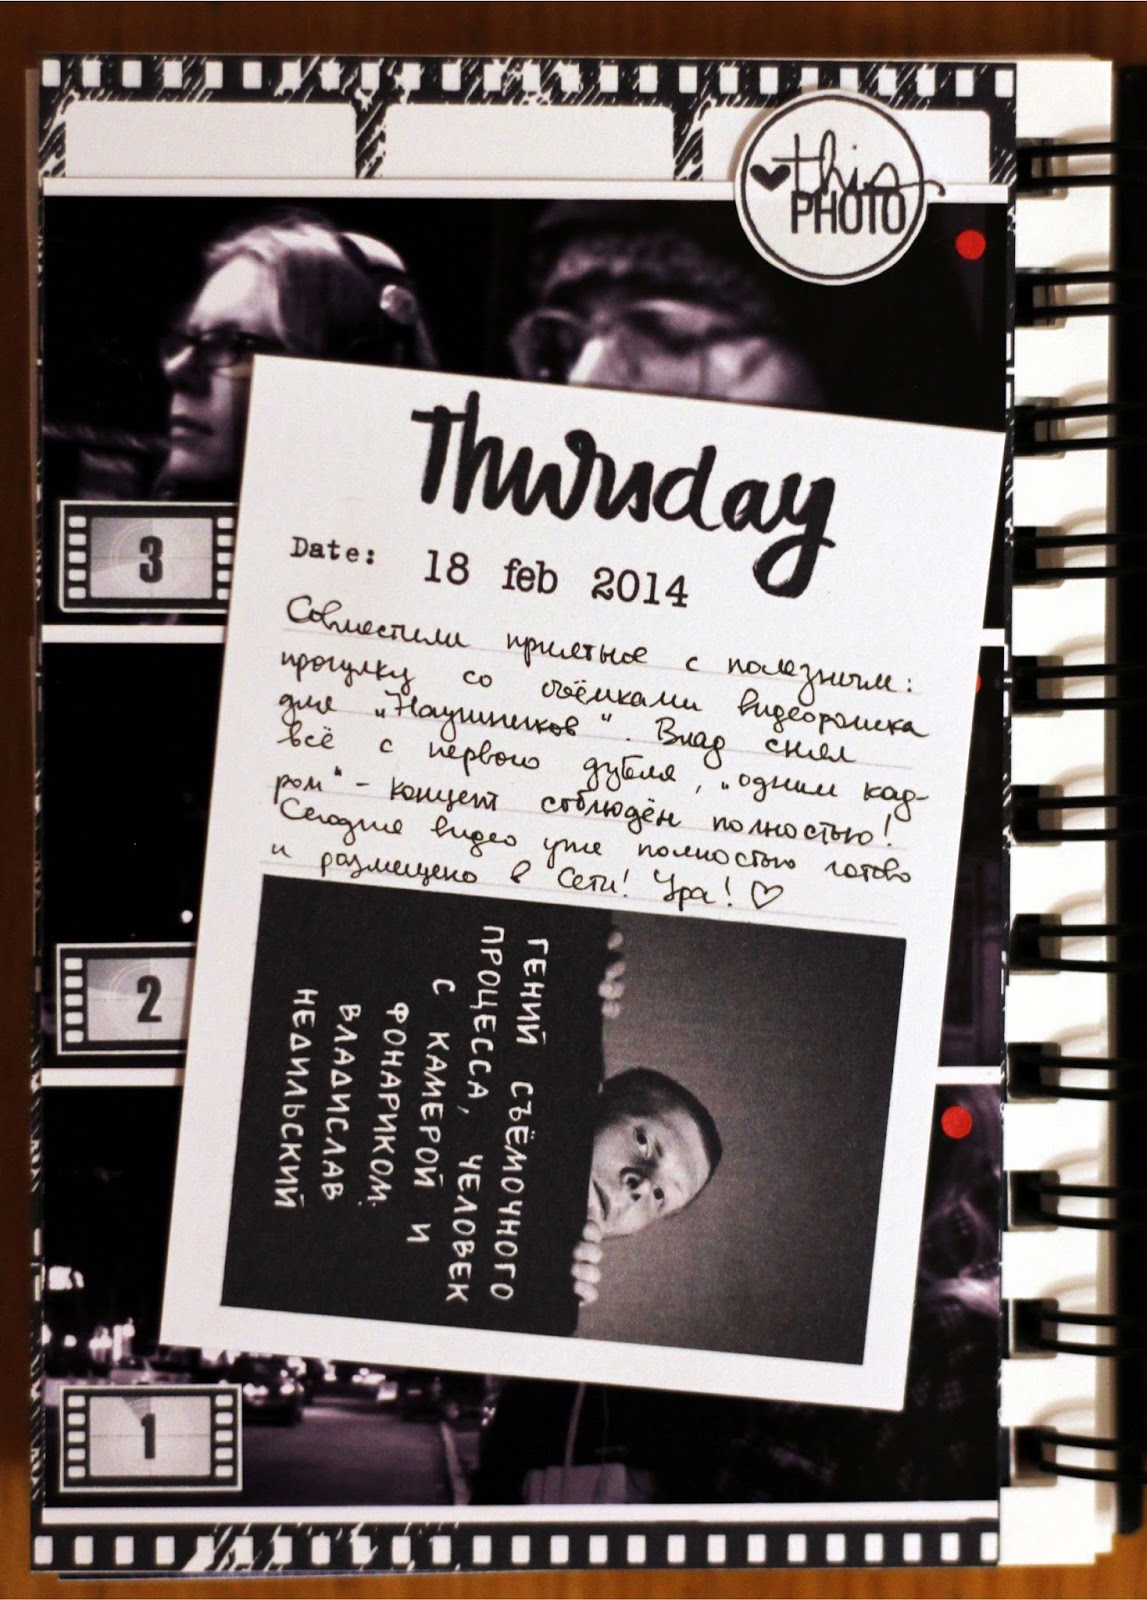 this
PHOTO
Thursday
Date: 18 feb 2014
Совместили приятное с полезным:
прогулку со съёмками видеоролика
для „Наушников“. Влад снял
всё с первого дубля, „одним кад-
ром“ - концепт соблюдён полностью!
Сегодня видео уже полностью готово
и размещено в Сети! Ура! ♡
3
2
1
ГЕНИЙ СЪЁМОЧНОГО
ПРОЦЕССА, ЧЕЛОВЕК
С КАМЕРОЙ И
ФОНАРИКОМ.
ВЛАДИСЛАВ
НЕДИЛЬСКИЙ